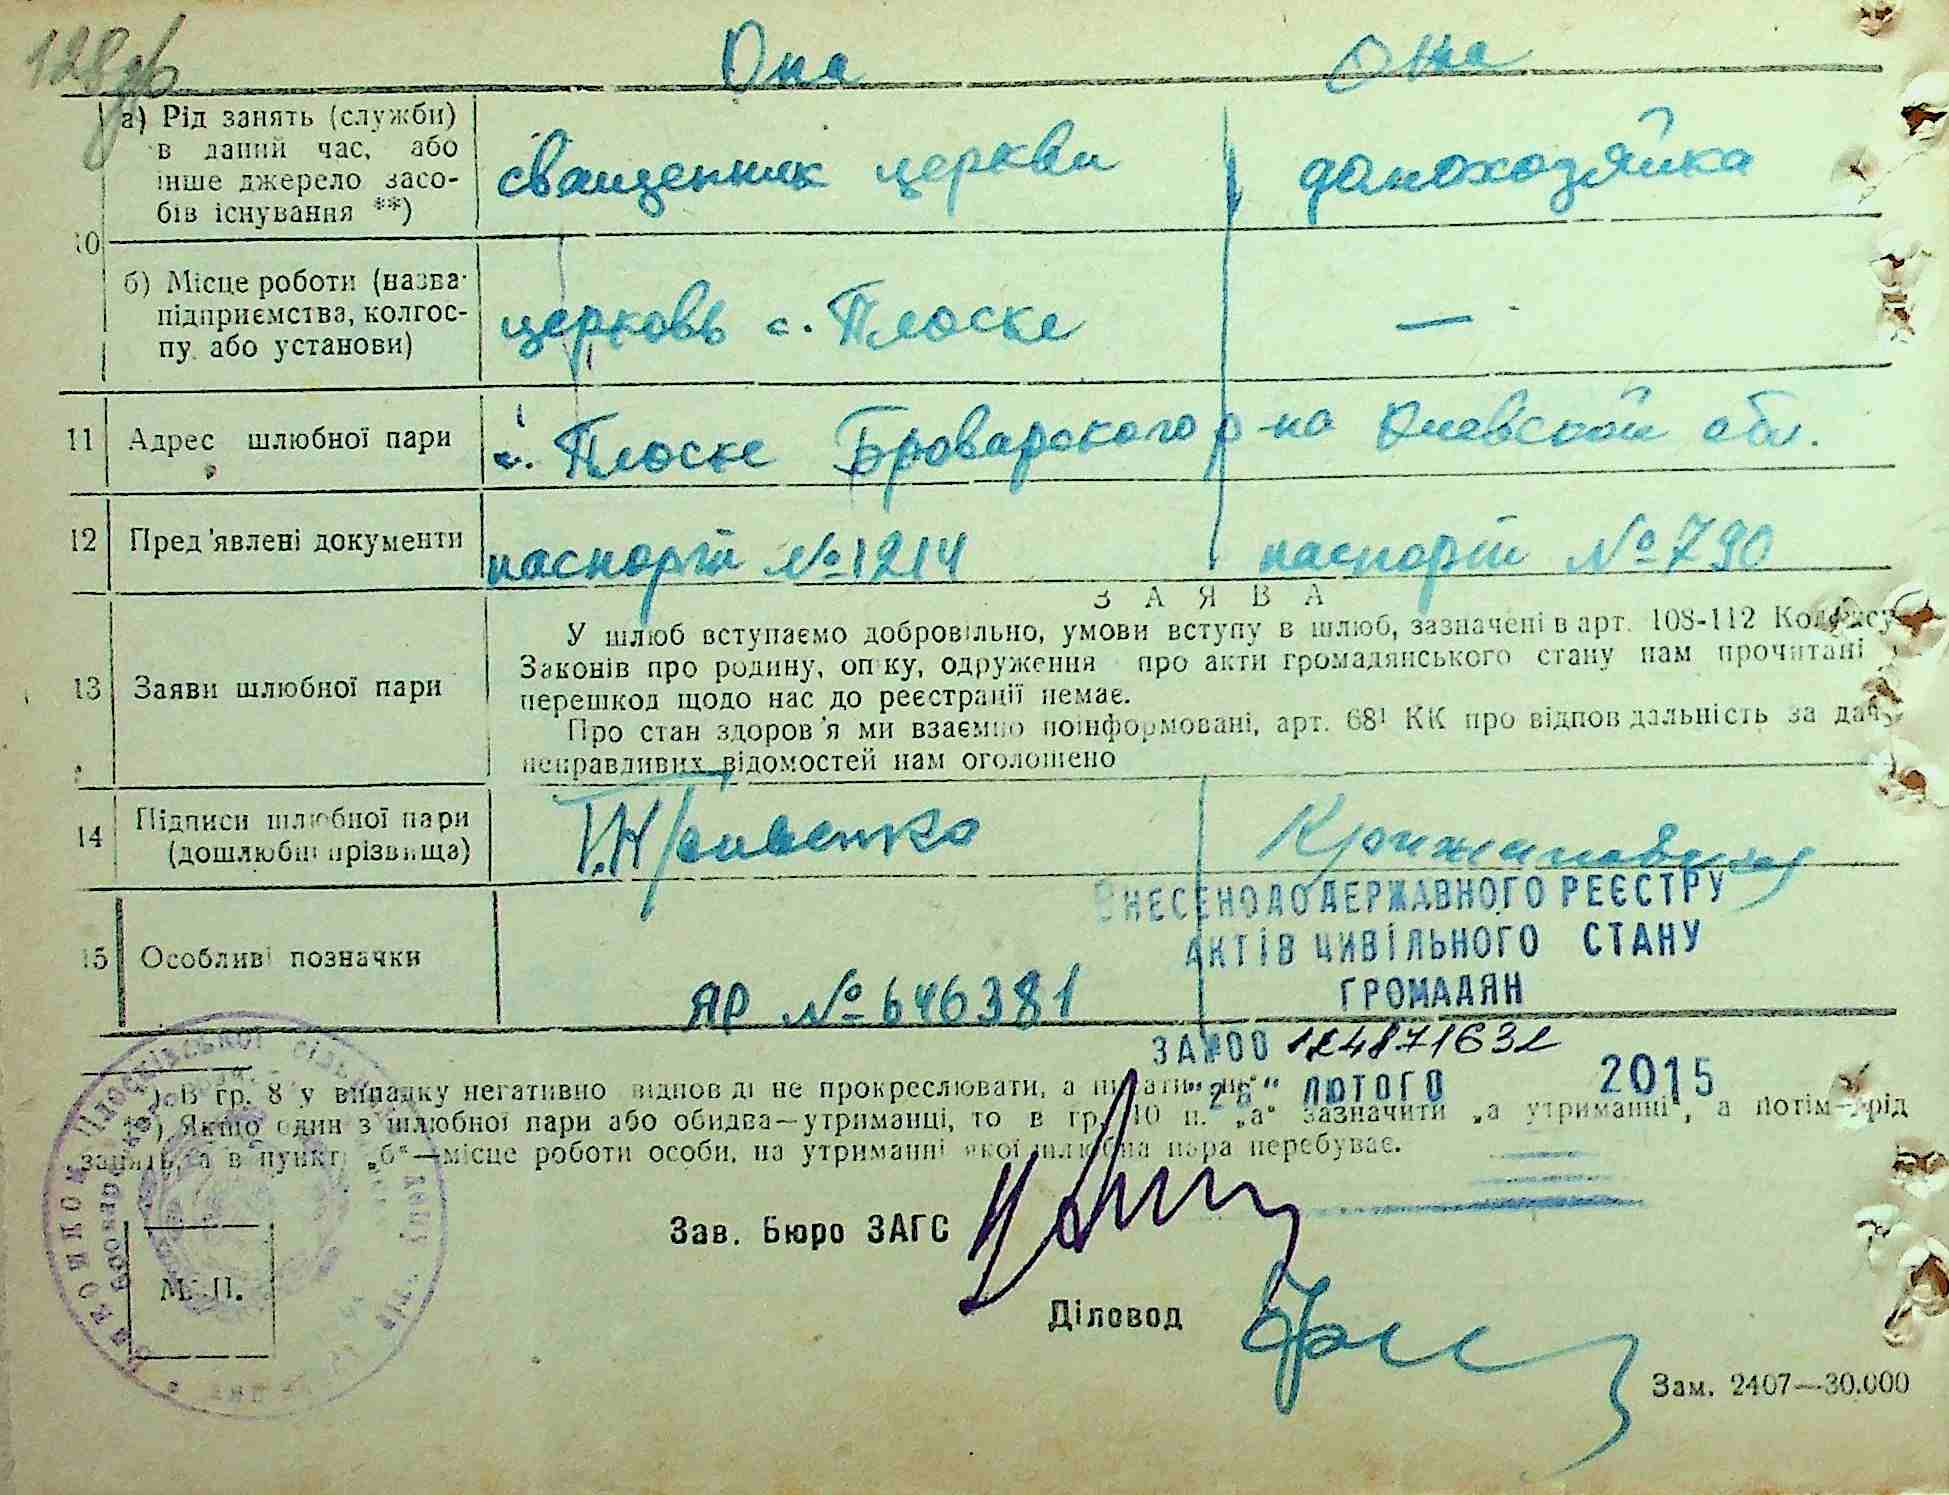 128 об
Она Она
а) Рід занять (служби)
в даний час, або
інше джерело засо-
бів існування **)
священник церкви домохозяйка
10
б) Місце роботи (назва
підприємства, колгос-
пу або установи)
церковь с. Плоске —
11 Адрес шлюбної пари с. Плоске Броварского р-на Киевской обл.
12 Пред'явлені документи паспорт №1214 паспорт №790
ЗАЯВА
У шлюб вступаємо добровільно, умови вступу в шлюб, зазначені в арт. 108-112 Кодексу
Законів про родину, опіку, одруження про акти громадянського стану нам прочитані
13 Заяви шлюбної пари
перешкод щодо нас до реєстрації немає.
Про стан здоров'я ми взаємно поінформовані, арт. 68¹ КК про відповідальність за дачу
неправдивих відомостей нам оголошено
14 Підписи шлюбної пари
(дошлюбні прізвища)
Крижановская
15 Особливі позначки
ЯР №646381
ВНЕСЕНО ДО ДЕРЖАВНОГО РЕЄСТРУ
АКТІВ ЦИВІЛЬНОГО СТАНУ
ГРОМАДЯН
ЗА №00 124871632
"26" ЛЮТОГО 2015
*) В гр. 8 у випадку негативно відповіді не прокреслювати, а писати
**) Якщо один з шлюбної пари або обидва—утриманці, то в гр. 10 п. „а" зазначити „а утриманні", а потім—рід
занять, а в пункті „б"—місце роботи особи, на утриманні якої шлюбна пара перебуває.
Зав. Бюро ЗАГС
М. П.
Діловод
Зам. 2407—30.000